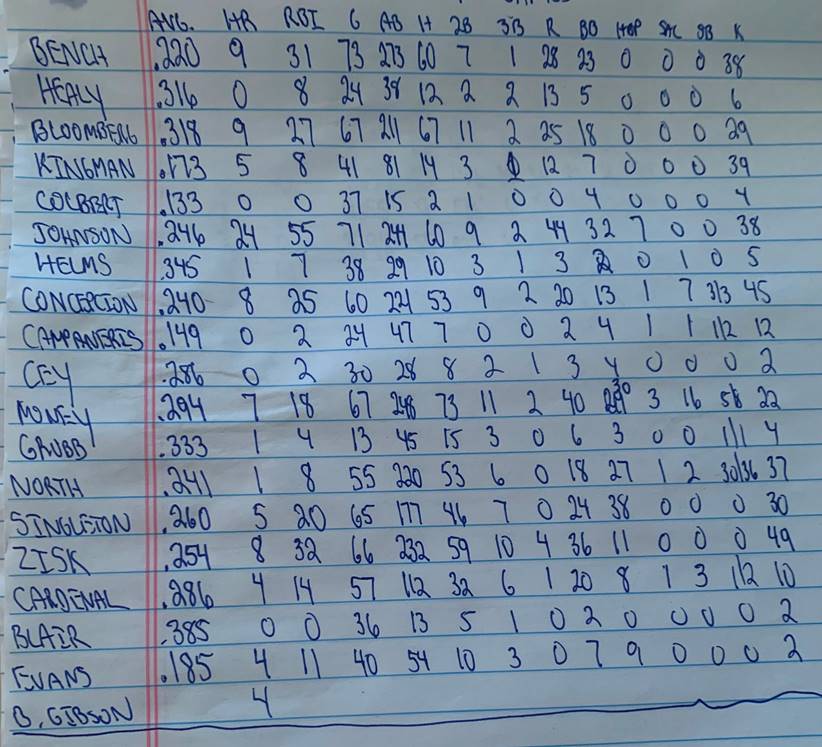 AVG. HR RBI G AB H 2B 3B R BB HBP SAC SB K
BENCH .220 9 31 73 273 60 7 1 28 23 0 0 0 38
HEALY .316 0 8 24 38 12 2 2 13 5 0 0 0 6
BLOOMBERG .318 9 27 67 211 67 11 2 25 18 0 0 0 29
KINGMAN .173 5 8 41 81 14 3 12 7 0 0 0 39
COLBERT .133 0 0 37 15 2 1 0 0 4 0 0 0 4
JOHNSON .246 24 55 71 244 60 9 2 44 32 7 0 0 38
HELMS .345 1 7 38 29 10 3 1 3 2 0 1 0 5
CONCEPCION .240 8 25 60 221 53 9 2 20 13 1 7 3/3 45
CAMPANERIS .149 0 2 24 47 7 0 0 2 4 1 1 1/2 12
CEY .286 0 2 30 28 8 2 1 3 4 0 0 0 2
MONEY .294 7 18 67 248 73 11 2 40 30 3 16 22
GRUBB .333 1 4 13 45 15 3 0 6 3 0 0 1/1 4
NORTH .241 1 8 55 220 53 6 0 18 27 1 2 30/36 37
SINGLETON .260 5 20 65 177 46 7 0 24 38 0 0 0 30
ZISK .254 8 32 66 232 59 10 4 36 11 0 0 0 49
CARDENAL .286 4 14 57 112 32 6 1 20 8 1 3 1/2 10
BLAIR .385 0 0 36 13 5 1 0 2 0 0 0 0 2
EVANS .185 4 11 40 54 10 3 0 7 9 0 0 0 2
B. GIBSON 4